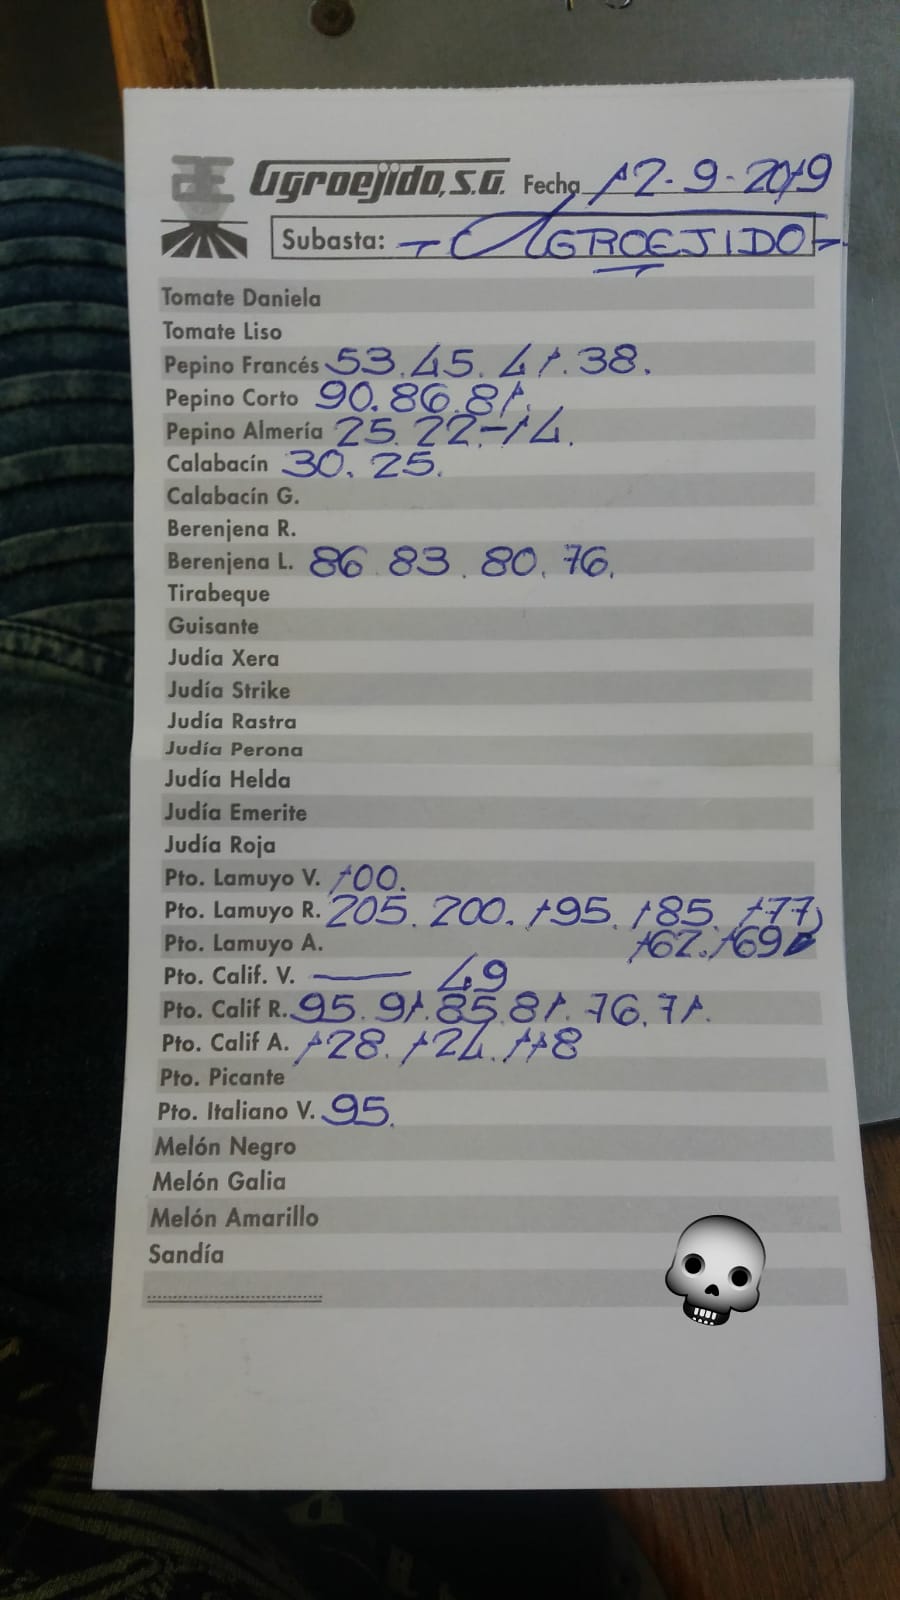 Agroejido, S.A. Fecha 12-9-2019
Subasta: - AGROEJIDO -
Tomate Daniela
Tomate Liso
Pepino Francés 53. 45. 41. 38.
Pepino Corto 90. 86. 81.
Pepino Almería 25. 22.-14.
Calabacín 30. 25.
Calabacín G.
Berenjena R.
Berenjena L. 86. 83. 80. 76.
Tirabeque
Guisante
Judía Xera
Judía Strike
Judía Rastra
Judía Perona
Judía Helda
Judía Emerite
Judía Roja
Pto. Lamuyo V. 100.
Pto. Lamuyo R. 205. 200. 195. 185. 177
Pto. Lamuyo A. 162. 169
Pto. Calif. V. — 49
Pto. Calif R. 95. 91. 85. 81. 76. 71.
Pto. Calif A. 128. 124. 118
Pto. Picante
Pto. Italiano V. 95.
Melón Negro
Melón Galia
Melón Amarillo
Sandía